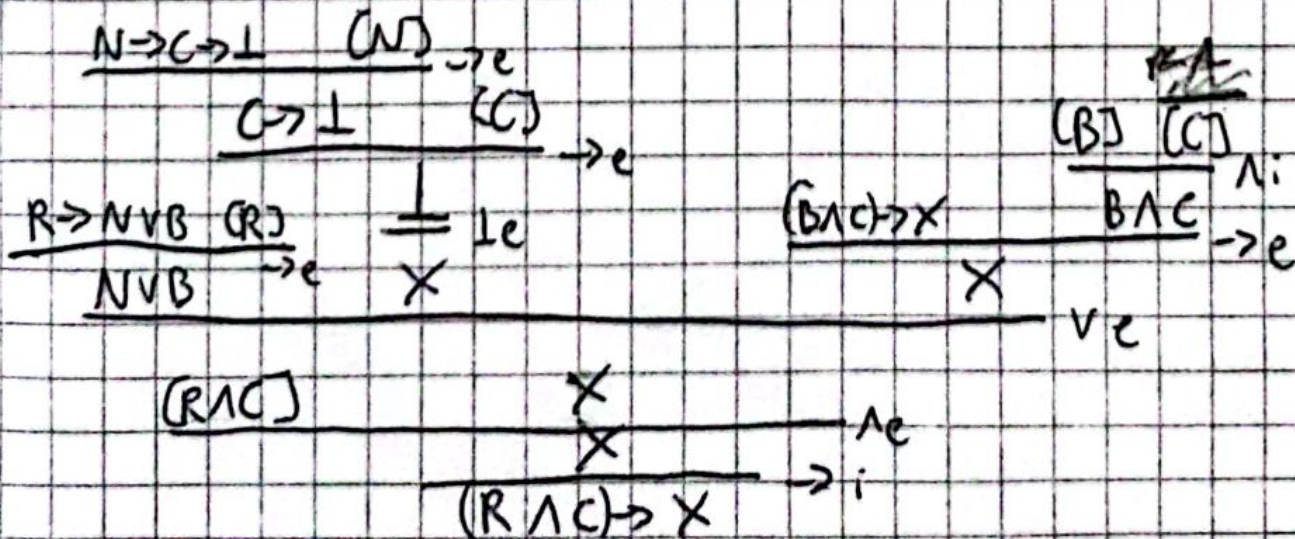 N→C→⊥ [N] →e
C→⊥ [C] →e
[B] [C] ∧i
R→N∨B [R] →e
⊥ ⊥e
(B∧C)→X B∧C →e
N∨B X X ∨e
[R∧C] X ∧e
X →i
(R∧C)→X